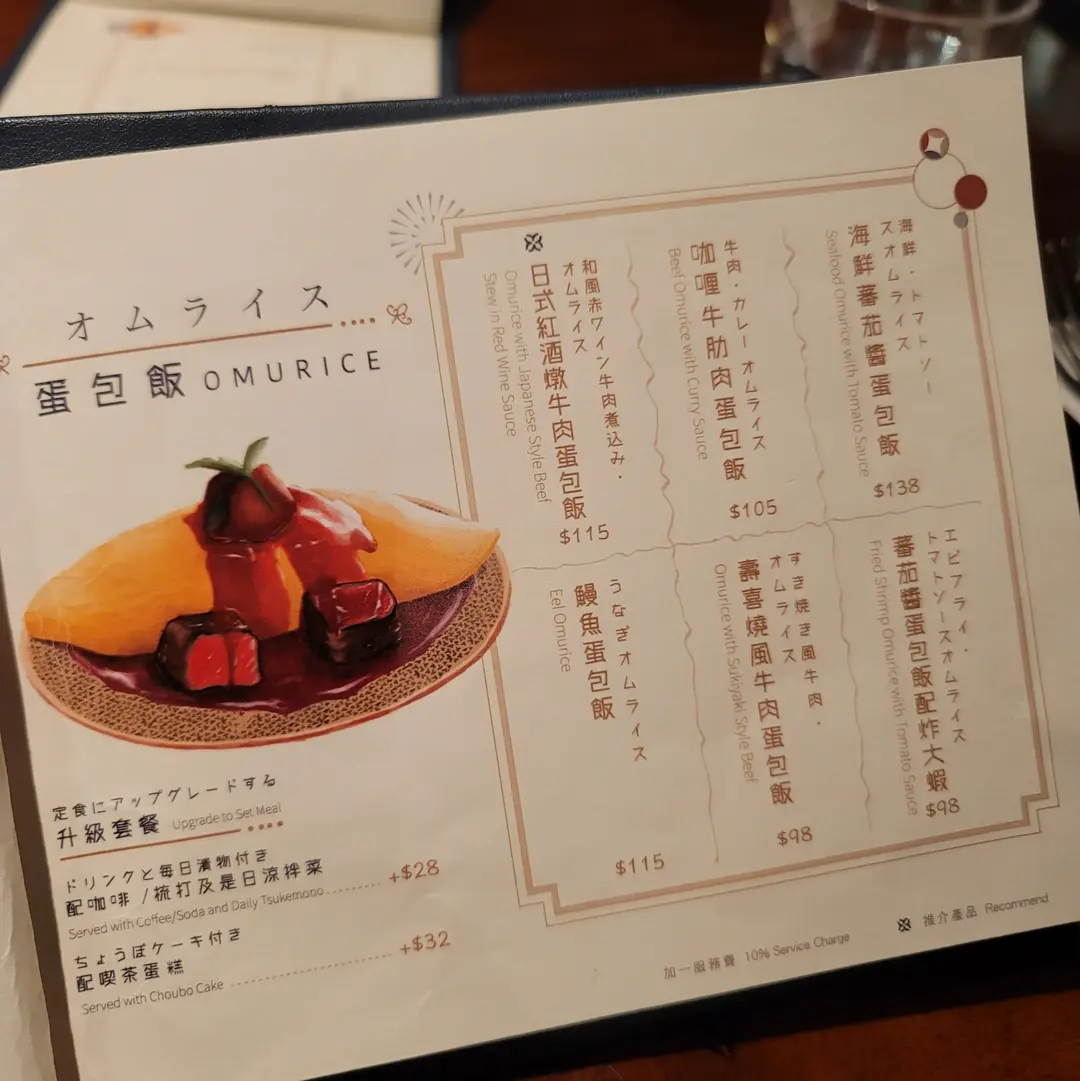 オムライス
蛋包飯 OMURICE
海鮮・トマトソー
スオムライス
海鮮蕃茄醬蛋包飯
Seafood Omurice with Tomato Sauce
$138
牛肉・カレー オムライス
咖喱牛肋肉蛋包飯
Beef Omurice with Curry Sauce
$105
和風赤ワイン牛肉煮込み・
オムライス
日式紅酒燉牛肉蛋包飯
Omurice with Japanese Style Beef
Stew in Red Wine Sauce
$115
エビフライ・
トマトソースオムライス
蕃茄醬蛋包飯配炸大蝦
Fried Shrimp Omurice with Tomato Sauce
$98
すき焼き風牛肉・
オムライス
壽喜燒風牛肉蛋包飯
Omurice with Sukiyaki Style Beef
$98
うなぎオムライス
鰻魚蛋包飯
Eel Omurice
$115
定食にアップグレードする
升級套餐 Upgrade to Set Meal
ドリンクと毎日漬物付き
配咖啡 /梳打及是日涼拌菜 +$28
Served with Coffee/Soda and Daily Tsukemono
ちょうぼケーキ付き
配喫茶蛋糕 +$32
Served with Choubo Cake
加一服務費 10% Service Charge
推介產品 Recommend